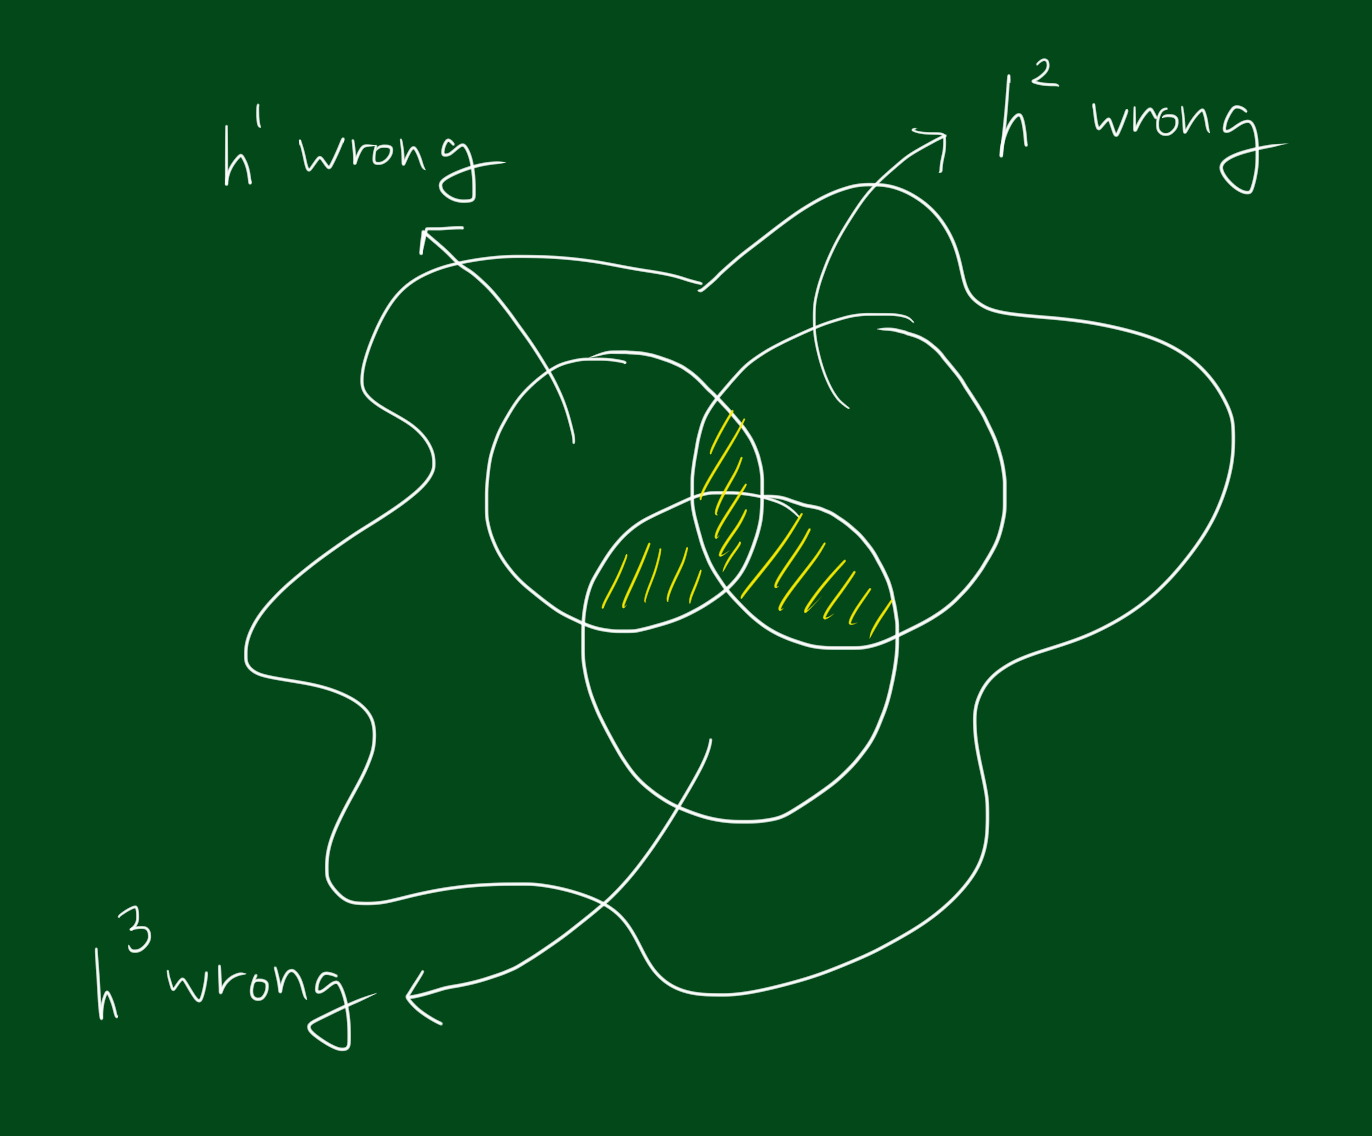 h¹ wrong
h² wrong
h³ wrong